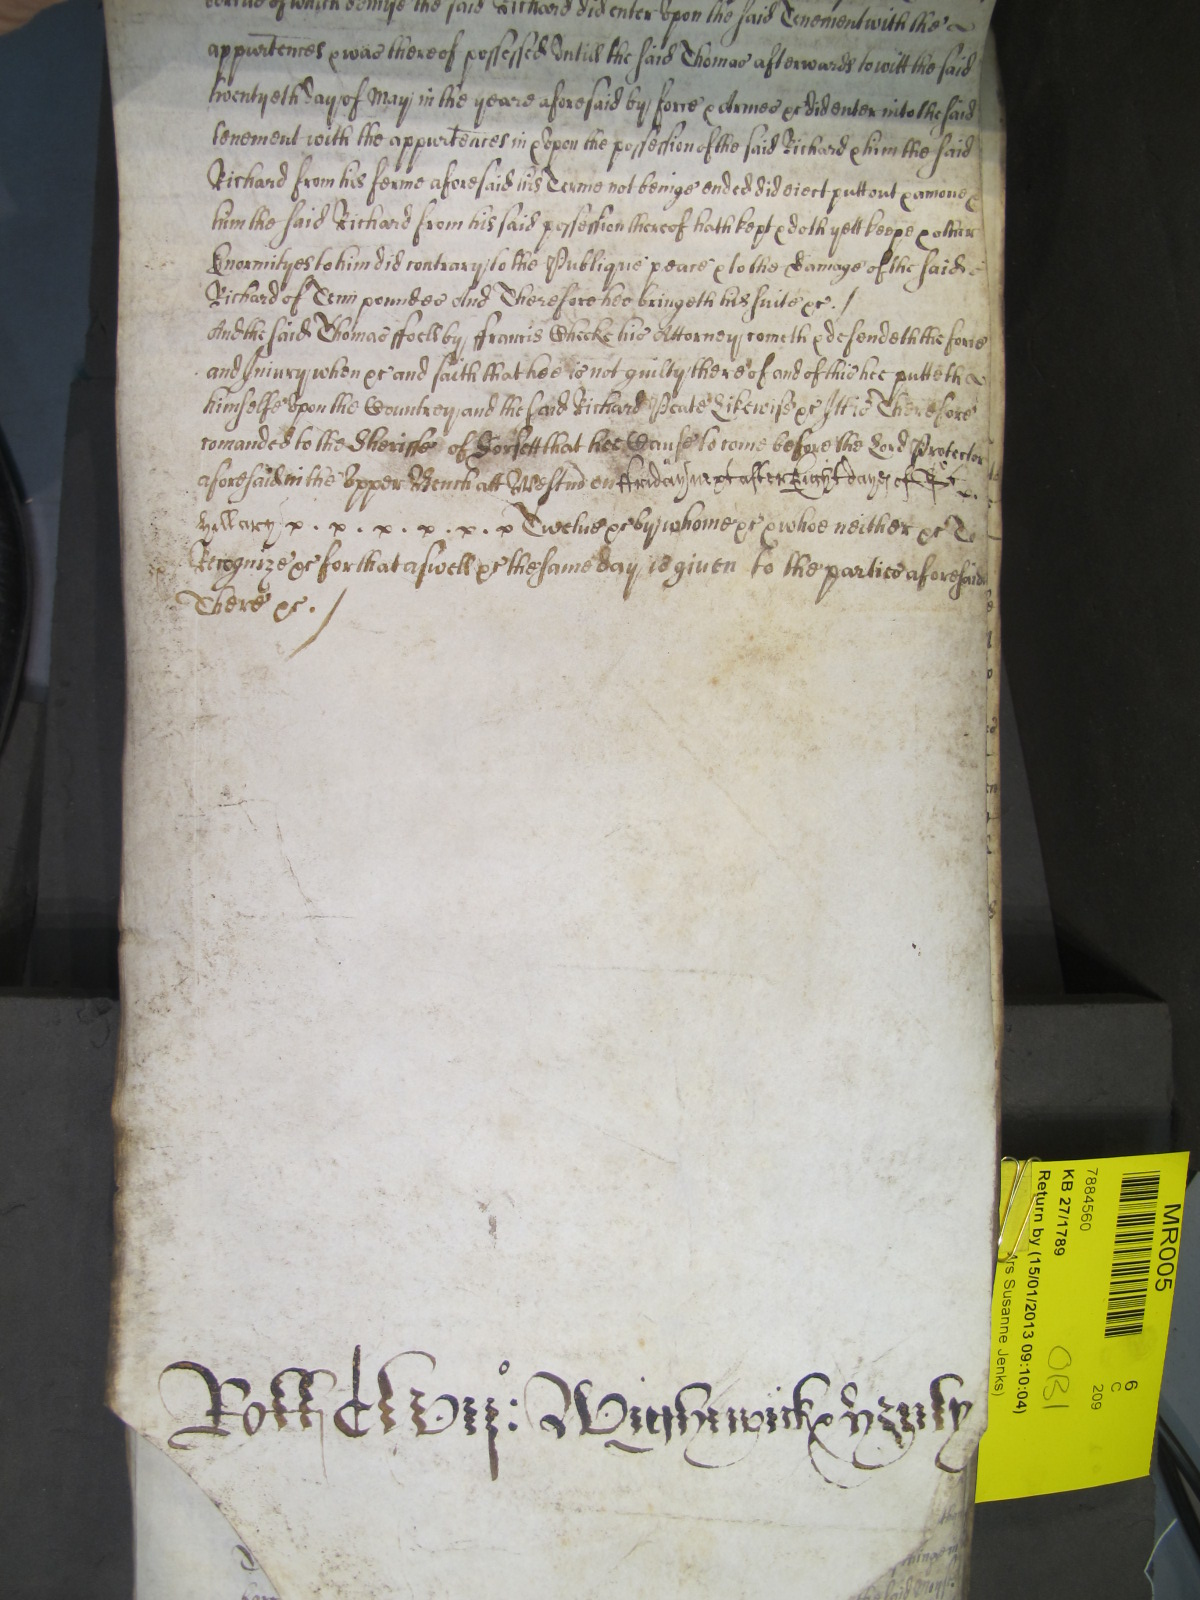 of which demise the said Richard did enter upon the said Tenement with the
appurtences & was thereof possessed Untill the said Thomas afterwards to witt the said
twentyeth day of May in the yeare aforesaid by force & Armes &c did enter into the said
tenement with the appurtences in & upon the possession of the said Richard & him the said
Richard from his ferme aforesaid his Terme not beinge ended did eiect putt out & amove &
him the said Richard from his said possession thereof hath kept & doth yett keepe & other
Enormityes to him did contrary to the Publique peace & to the damage of the said
Richard of Tenn poundes And Therefore hee bringeth his suite &c. /
And the said Thomas ffoell by ffrancis Cheeke his Attorney cometh & defendeth the force
and Iniury when &c and saith that hee is not guilty thereof and of this hee putteth
himselfe Upon the Countrey and the said Richard Likewise &c It is Therefore
comanded to the Sheriffe of Dorsett that hee Cause to come before the Lord Protector
aforesaid in the Upper Bench att Westm on ffriday next after Eight dayes of St
Hillary Twelve &c by whome &c & whoe neither &c To
Recognize &c for that aswell &c the same day is given to the parties aforesaid
There &c. /
Roll
MR005
7884560
KB 27/1789
Return by (15/01/2013 09:10:04)
Mrs Susanne Jenks)
6
C
209
OB1